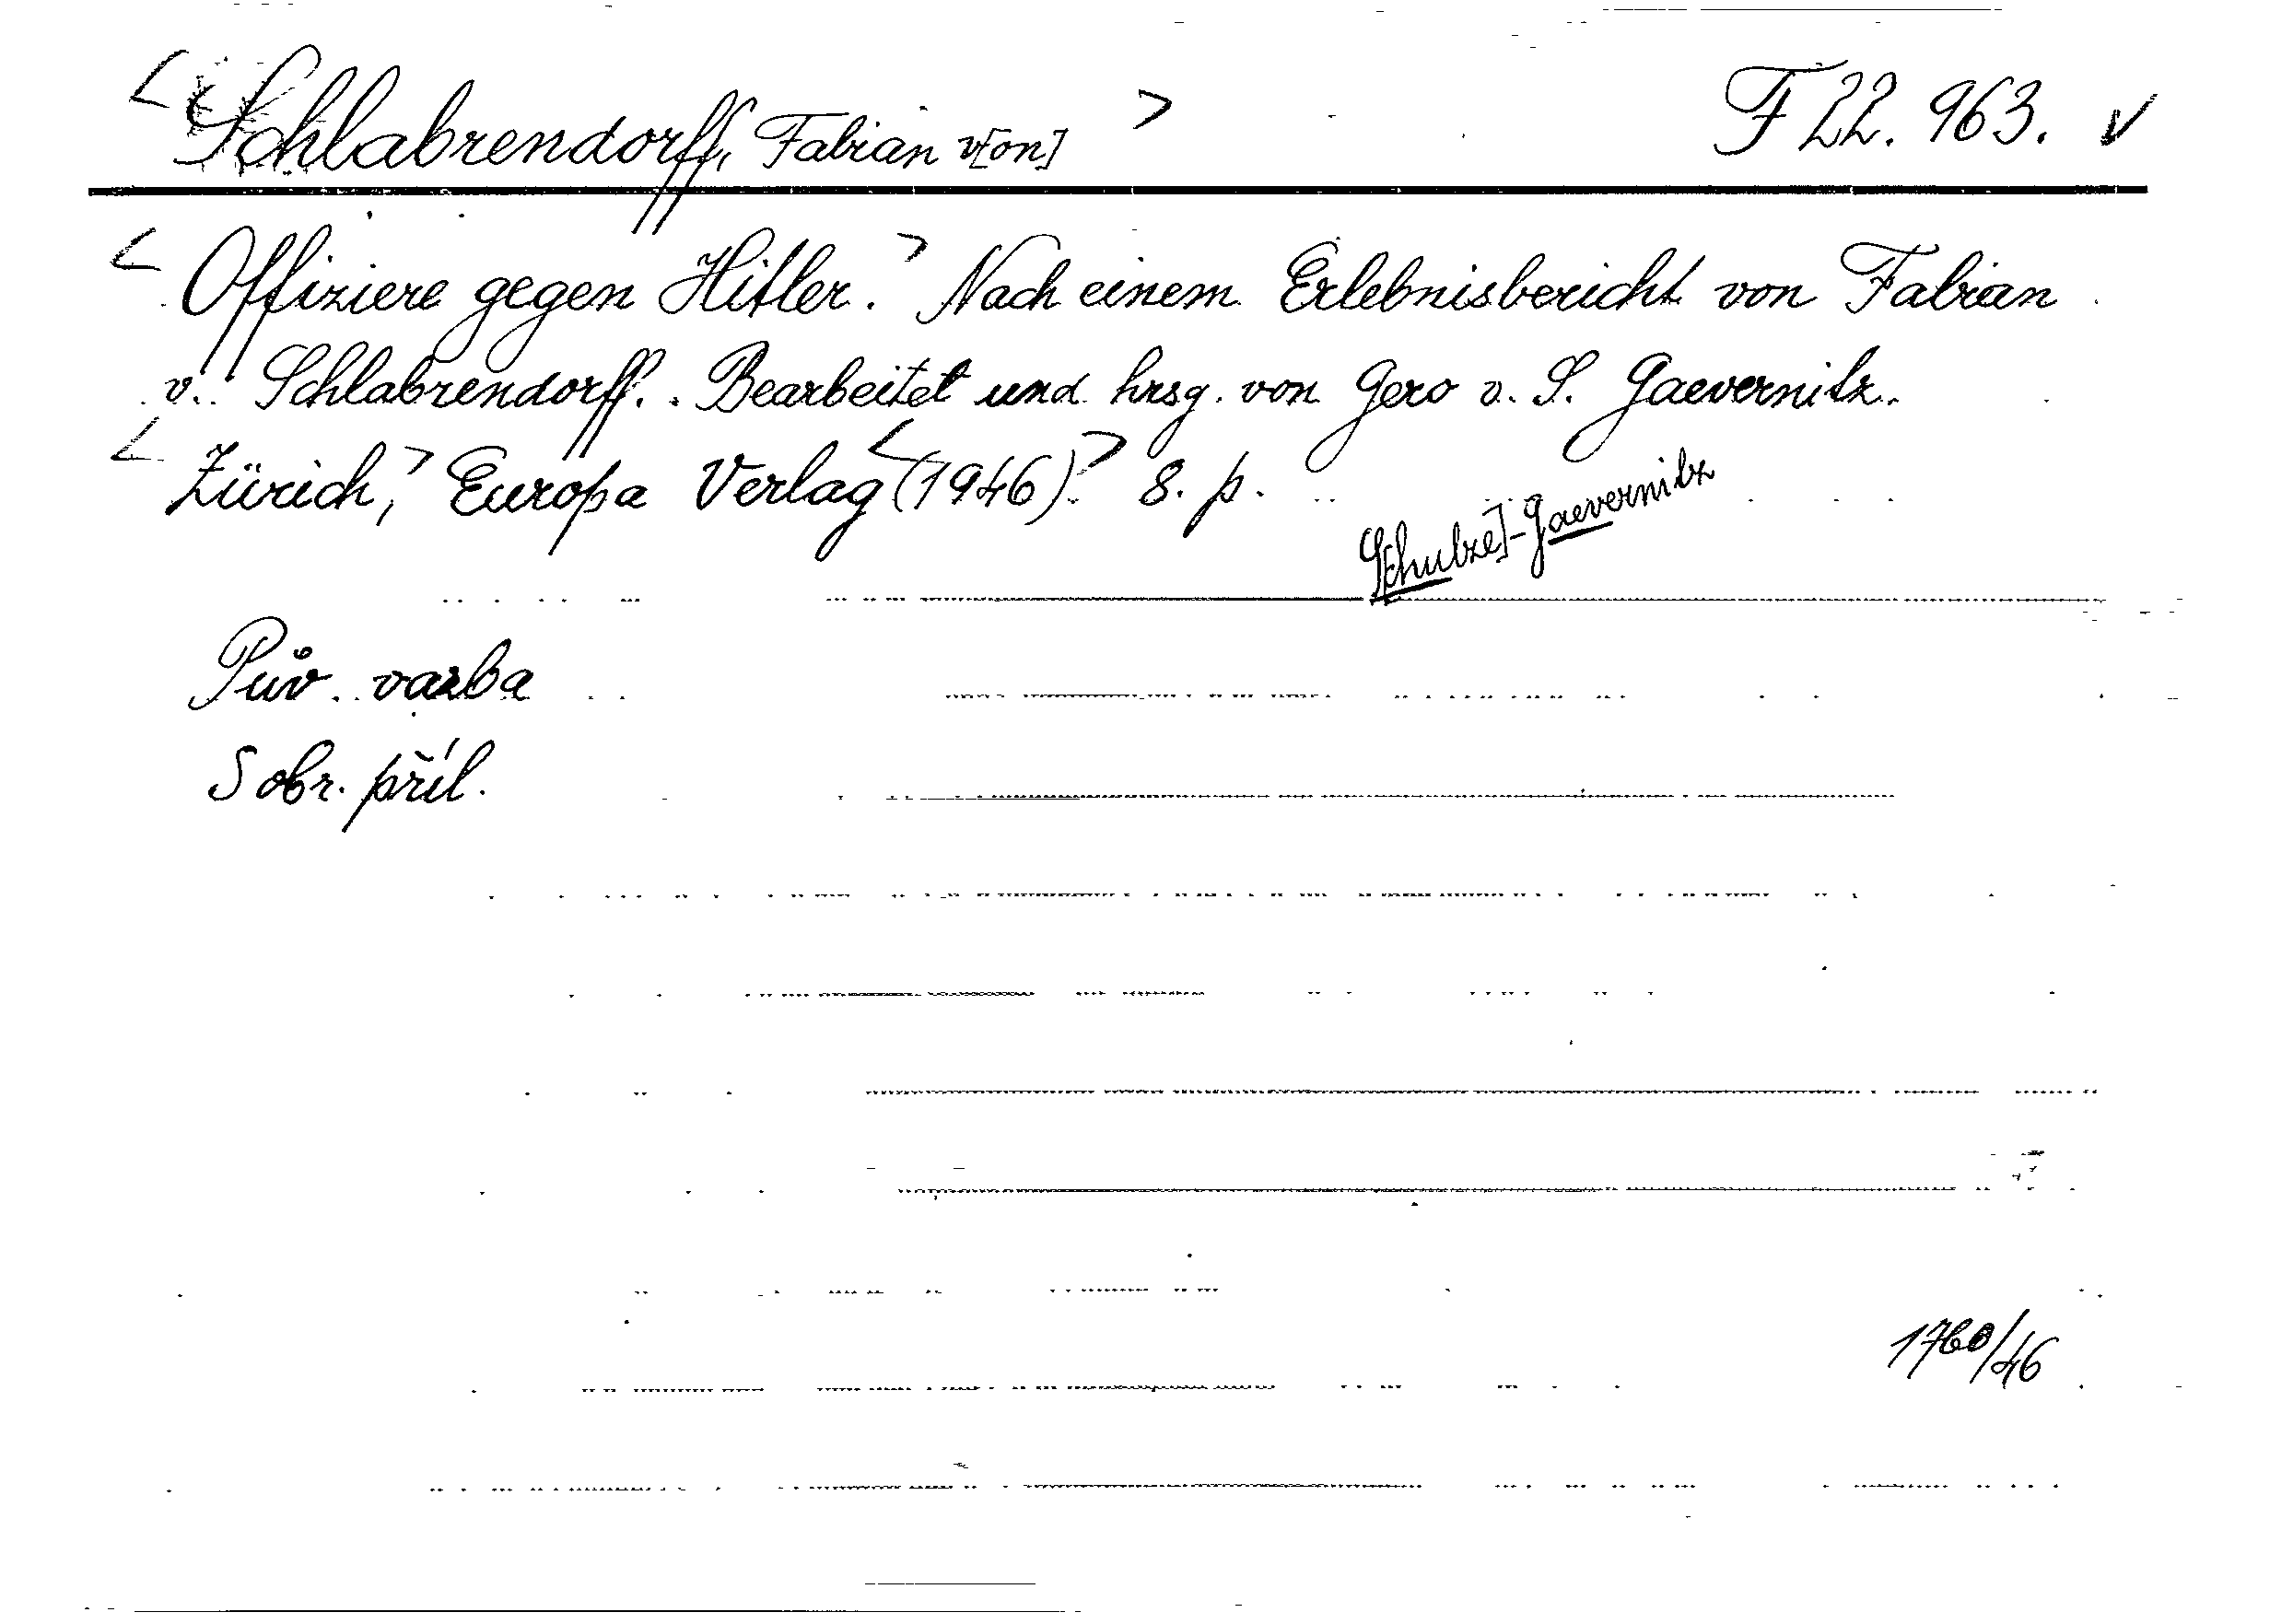 <Schlabrendorff, Fabian v[on]> F 22. 963. ✓
<Offiziere gegen Hitler.> Nach einem Erlebnisbericht von Fabian
v. Schlabrendorff. Bearbeitet und hrsg. von Gero v. S. Gaevernitz.
<Zürich,> Europa Verlag <(1946).> 8. p.
S[chulze]-Gaevernitz
Pův. vazba
S obr. příl.
1760/46